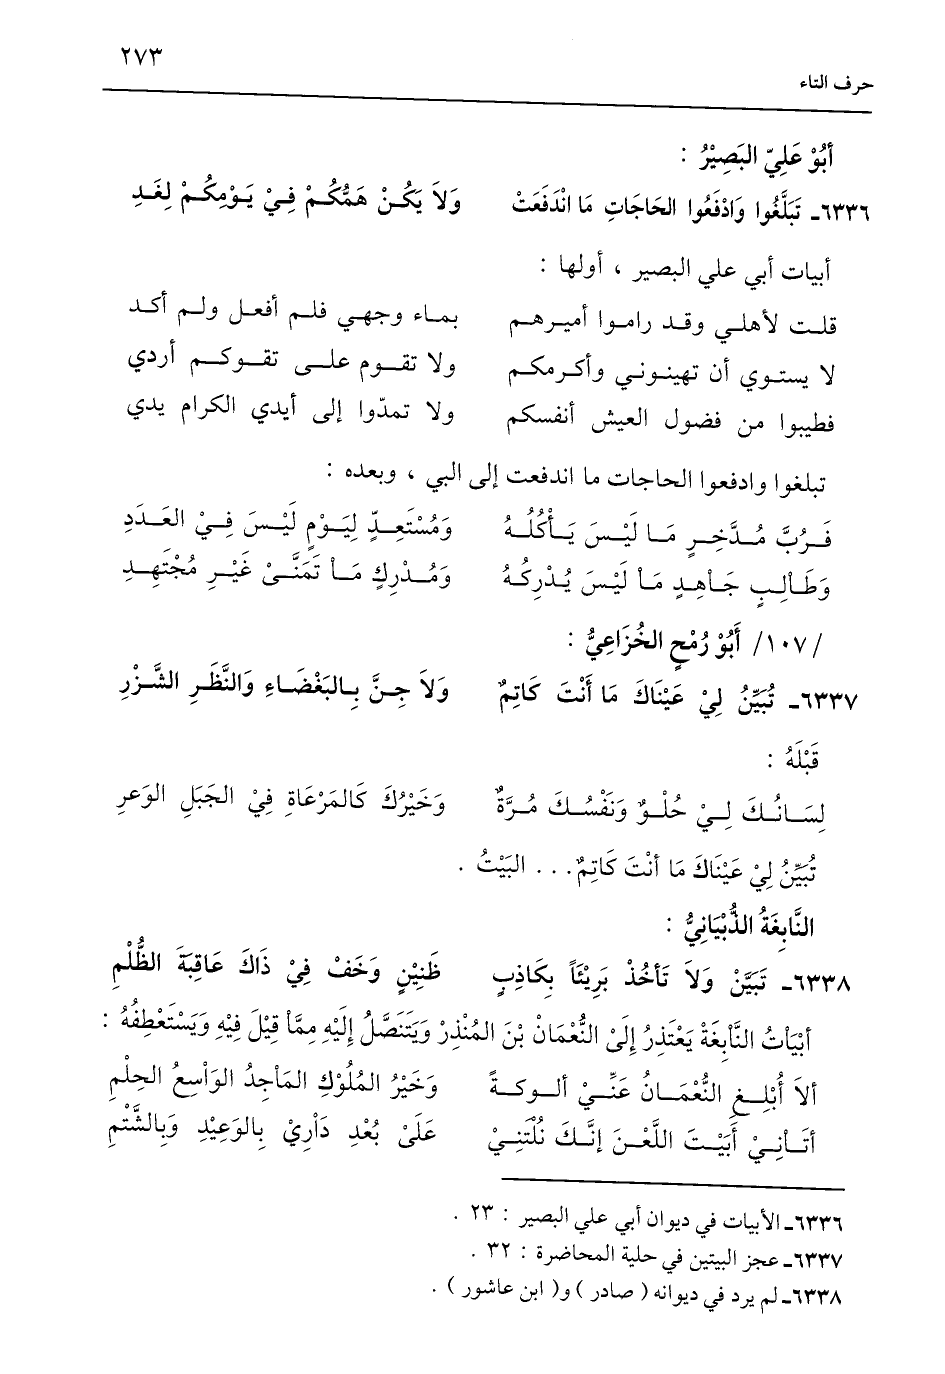 ٢٧٣
حرف التاء
أَبُوْ عَلِيّ البَصِيْرُ :
٦٣٣٦ـ تَبَلَّغُوا وَادْفَعُوا الحَاجَاتِ مَا انْدَفَعَتْ وَلاَ يَكُـنْ هَمُّكُـمْ فِـيْ يَـوْمِكُـمْ لِغَـدِ
أبيات أبي علي البصير ، أولها :
قلـت لأهلـي وقـد رامـوا أميـرهـم بمـاء وجهـي فلـم أفعـل ولـم أكـد
لا يستـوي أن تهينـوني وأكـرمكـم ولا تقـوم علـى تقـوكـم أردي
فطيبوا من فضول العيش أنفسكم ولا تمدّوا إلى أيدي الكرام يدي
تبلغوا وادفعوا الحاجات ما اندفعت إلى البي ، وبعده :
فَـرُبَّ مُـدَّخِـرٍ مَـا لَيْـسَ يَـأْكُلُـهُ وَمُسْتَعِـدٍّ لِيَـوْمٍ لَيْـسَ فِـيْ العَـدَدِ
وَطَـالِـبٍ جَـاهِـدٍ مَـا لَيْـسَ يُـدْرِكُـهُ وَمُـدْرِكٍ مَـا تَمَنَّـىْ غَيْـرِ مُجْتَهِـدِ
/١٠٧/ أَبُوْ رُمْحٍ الخُزَاعِيُّ :
٦٣٣٧ـ تُبَيِّنُ لِيْ عَيْنَاكَ مَا أَنْتَ كَاتِمٌ وَلاَ جِـنَّ بِـالبَغْضَـاءِ وَالنَّظَـرِ الشَّـزْرِ
قَبْلَهُ :
لِسَـانُـكَ لِـيْ حُلْـوٌ وَنَفْسُـكَ مُـرَّةٌ وَخَيْرُكَ كَالمَرْعَاةِ فِيْ الجَبَلِ الوَعرِ
تُبَيِّنُ لِيْ عَيْنَاكَ مَا أَنْتَ كَاتِمٌ. . . البَيْتُ .
النَّابِغَةُ الذُّبْيَانِيُّ :
٦٣٣٨ـ تَبَيَّنْ وَلاَ تَأْخُذْ بَرِيْئَاً بِكَاذِبٍ ظَنِيْنٍ وَخَفْ فِيْ ذَاكَ عَاقِبَةَ الظُّلْمِ
أَبْيَاتُ النَّابِغَةْ يَعْتَذِرُ إِلَىْ النُّعْمَانْ بْنَ المُنْذِرْ وَيَتَنَصَّلُ إِلَيْهِ مِمَّا قِيْلَ فِيْهِ وَيَسْتَعْطِفُهُ :
ألاَ أُبْلِـغِ النُّعْمَـانُ عَنِّـيْ ألـوكـةً وَخَيْرُ المُلُوْكِ المَاجِدُ الوَاسِعُ الحِلْمِ
أَتَـانِـيْ أَبَيْـتَ اللَّعْـنَ إنَّـكَ نُلْتَنِـيْ عَلَىْ بُعْدِ دَارِيْ بِالوَعِيْدِ وَبِالشَّتْمِ
٦٣٣٦ـ الأبيات في ديوان أبي علي البصير : ٢٣ .
٦٣٣٧ـ عجز البيتين في حلية المحاضرة : ٣٢ .
٦٣٣٨ـ لم يرد في ديوانه ( صادر ) و( ابن عاشور ) .